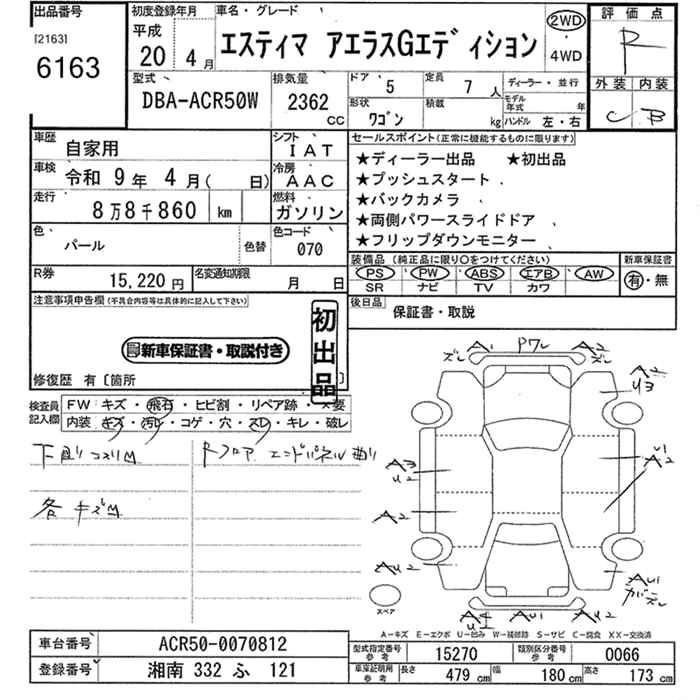 出品番号
[2163]
6163
初度登録年月
平成
20年 4月
車名・グレード
エスティマ アエラスGエディション
2WD
4WD
評価点
R
外装 内装
C B
型式
DBA-ACR50W
排気量
2362
CC
ドア
5
定員
7人
形状
ワゴン
積載
kg
ディーラー・並行
モデル年式 年
ハンドル 左・右
車歴
自家用
シフト
IAT
車検
令和 9年 4月( 日)
冷房
AAC
走行
8万8千860 km
燃料
ガソリン
色
パール
色替
色コード
070
R券
15,220円
名変通知期限
月 日
セールスポイント(正常に機能するものに限ります)
★ディーラー出品 ★初出品
★プッシュスタート
★バックカメラ
★両側パワースライドドア
★フリップダウンモニター
装備品(純正品に限り○をつけてください)
PS PW ABS エアB AW
SR ナビ TV カワ
新車保証書
有・無
後日品
保証書・取説
注意事項申告欄(不具合内容等は具体的に記入して下さい)
新車保証書・取説付き
初出品
修復歴 有〔箇所 〕
検査員記入欄
FW キズ・飛石・ヒビ割・リペア跡・×要
内装 キズ・汚レ・コゲ・穴・スレ・キレ・破レ
下廻りコスリM
各キズM
Rフロア エンドパネル曲り
A1
ズレ
Pワレ
A2
ズレ
A2
U3
A3
U2
U1
A2
A2
AU2
AU1
ガーズレ
スペア
AU1
AU2
A-キズ E-エクボ U-凹み W-補修跡 S-サビ C-腐食 XX-交換済
車台番号
ACR50-0070812
登録番号
湘南 332 ふ 121
型式指定番号
参考
15270
類別区分番号
参考
0066
車庫証明用
参考
長さ
479 cm
幅
180 cm
高さ
173 cm